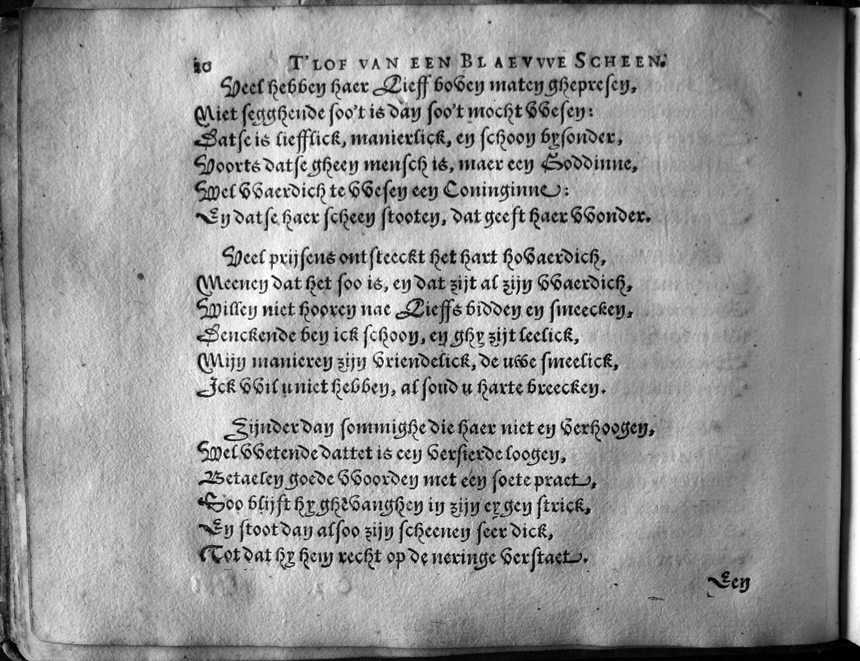 20 T'LOF VAN EEN BLAEVVVE SCHEEN.
Veel hebben haer Lieff boven maten ghepresen,
Niet segghende soo't is dan soo't mocht VVesen:
Datse is liefflick, manierlick, en schoon bysonder,
Voorts datse gheen mensch is, maer een Goddinne,
Wel VVaerdich te VVesen een Coninginne:
En datse haer scheen stooten, dat geeft haer VVonder.
Veel prijsens ontsteeckt het hart hovaerdich,
Meenen dat het soo is, en dat zijt al zijn VVaerdich,
Willen niet hooren nae Lieffs bidden en smeecken,
Denckende ben ick schoon, en ghy zijt leelick,
Mijn manieren zijn vriendelick, de uwe smeelick,
Ick VVil u niet hebben, al soud u harte breecken.
Zijnder dan sommighe die haer niet en verhoogen,
Wel VVetende dattet is een versierde loogen,
Betaelen goede VVoorden met een soete praet,
Soo blijft hy ghevanghen in zijn eygen strick,
En stoot dan alsoo zijn scheenen seer dick,
Tot dat hy hem recht op de neringe verstaet.
Een